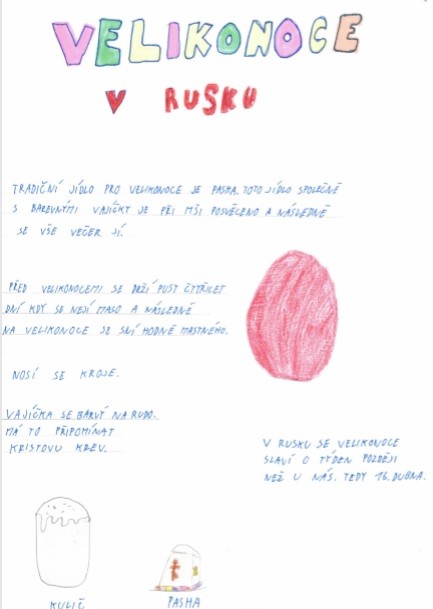 VELIKONOCE
V RUSKU
TRADIČNÍ JÍDLO PRO VELIKONOCE JE PASHA. TOTO JÍDLO SPOLEČNĚ
S BAREVNÝMI VAJÍČKY JE PŘI MŠI POSVĚCENO A NÁSLEDNĚ
SE VŠE VEČER JÍ.
PŘED VELIKONOCEMI SE DRŽÍ PUST ČTYŘICET
DNÍ KDY SE NEJÍ MASO A NÁSLEDNĚ
NA VELIKONOCE SE SNÍ HODNĚ MASTNÉHO.
NOSÍ SE KROJE.
VAJÍČKA SE BARVÍ NA RUDO.
MÁ TO PŘIPOMÍNAT
KRISTOVU KREV.
V RUSKU SE VELIKONOCE
SLAVÍ O TÝDEN POZDĚJI
NEŽ U NÁS. TEDY 16. DUBNA.
KULIČ
PASHA